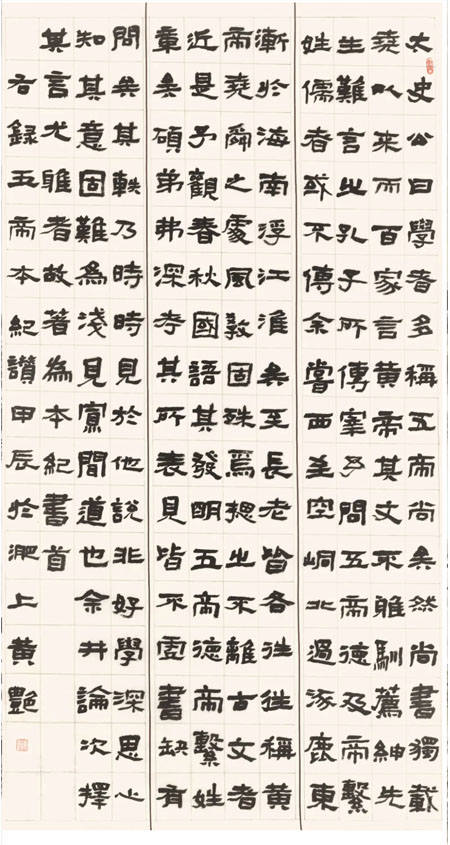 太史公曰學者多稱五帝尚矣然尚書獨載
堯以來而百家言黃帝其文不雅馴薦紳先
生難言之孔子所傳宰予問五帝德及帝繫
姓儒者或不傳余嘗西至空峒北過涿鹿東
漸於海南浮江淮矣至長老皆各往往稱黃
帝堯舜之處風教固殊焉揔之不離古文者
近是予觀春秋國語其發明五帝德帝繫姓
章矣碩弟弗深考其所表見皆不虛書缺有
問矣其軼乃時時見於他說非好學深思心
知其意固難為淺見寡間道也余并論次擇
其言尤雅者故著為本紀書首
右錄五帝本紀讚甲辰於淝上黃艷